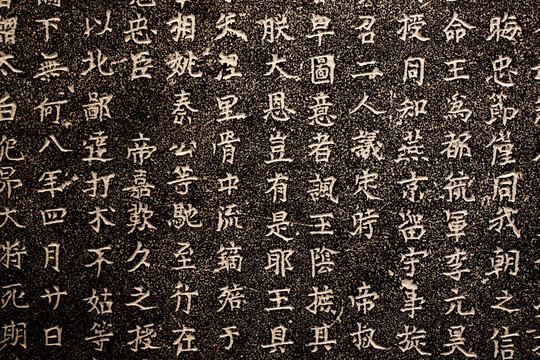 晦忠節崖同我朝之信
命王為都統軍李元昊
授同知燕京留守事旋
召二人議定時 帝叔
早圖意者諷王陰撫其
朕大恩豈有是耶王具
里中流鏑殪于
相姚秦公等馳至行在
忠臣 帝嘉歎久之授
以北鄙達打木不姑等
下無何八年四月廿日
太白犯昴大將死期